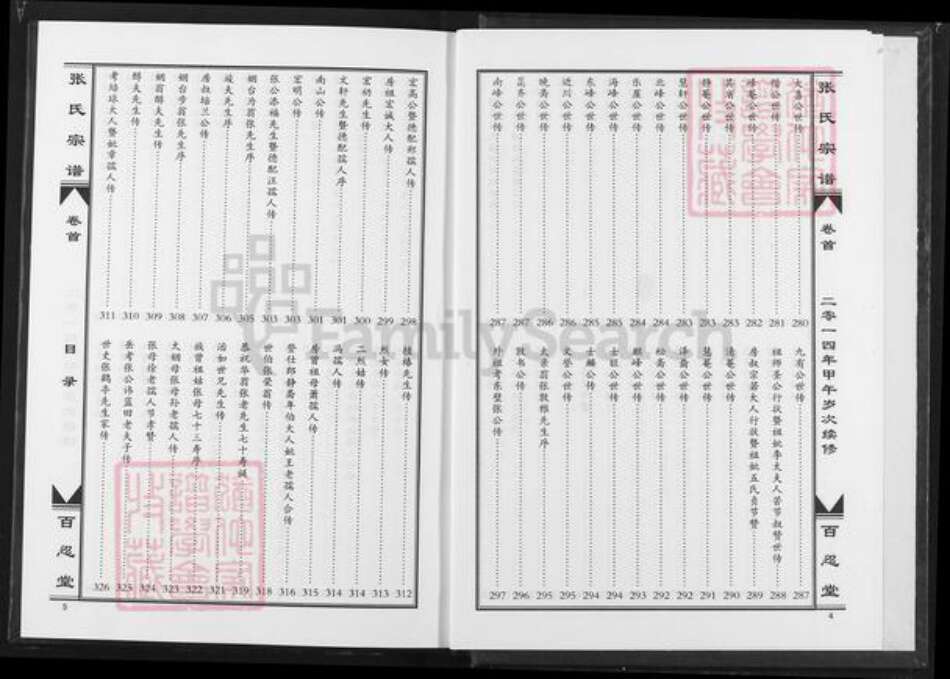 张氏宗谱
卷首
二零一四年甲午岁次续修
百忍堂
4
大喜公世传 280
楷公世传 281
峰菴公世传 282
静菴公世传 283
慧轩公世传 283
北峰公世传 284
乐崖公世传 284
海峰公世传 285
东峰公世传 285
近川公世传 286
晚亭公世传 286
昆乔公世传 287
南峰公世传 287
九有公世传 287
祖师圣公行状暨祖妣李太夫人苦节叔赞世传 288
房叔宗若大人行状暨祖妣五氏贞节赞 289
清菴公世传 290
慧菴公世传 291
泽益公世传 292
松乔公世传 292
麒峰公世传 293
士钰公传 294
士麟公传 294
文誉公传 295
大亲翁张敦雅先生序 295
敦书公传 296
外祖考东壁张公传 297
张氏宗谱
卷首
目录
百忍堂
5
宏高公暨德配郑孺人传 298
房祖宏诚大人传 299
宏初先生传 300
文轩先生暨德配孺人序 301
南山公传 301
宏明公传 303
张公添福先生暨德配汪孺人传 303
姻台为前张先生序 305
竣夫先生序 306
房叔培兰公传 307
姻台步前张先生序 308
姻翁醇夫先生传 309
醇夫先生传 310
考培球大人暨妣章孺人传 311
植椿先生传 312
烈女传 313
二烈姑传 314
冯孺人传 314
房曾祖母萧孺人传 315
登仕郎静斋年伯大人妣王老孺人合传 316
世伯张荣前传 318
恭祝华翁张老先生七十寿诞 319
活如世兄先生传 321
族曾祖姑张母七十三寿序 322
大姻母张母孙老孺人传 323
张母徐老孺人节孝赞 324
岳考张公讳蓝田老夫子传 325
世丈张鹤亭先生家传 326
FamilySearch